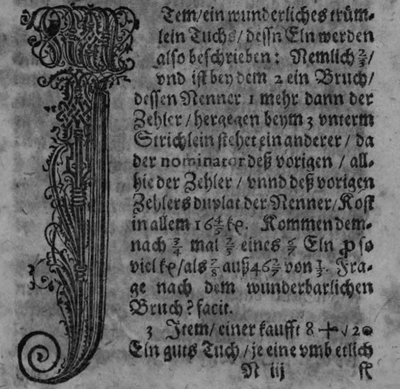 Item/ein wunderliches trüm-
lein Tuchs/dessn Eln werden
also beschrieben: Nemlich 2/3/
vnd ist bey dem 2 ein Bruch/
dessen Nenner 1 mehr dann der
Zehler/hergegen beym 3 vnterm
Strichlein stehet ein anderer/da
der nominator deß vorigen/all-
hie der Zehler/vnnd deß vorigen
Zehlers duplat der Nenner/Kost
in allem 16 4/5 kr. Kommen dem-
nach 3/4 mal eines Eln pro so
viel kr/als auß 46 von 1/3. Fra-
ge nach dem wunderbarlichen
Bruch? facit.
3 Item/einer kaufft 8 + √20
Eln guts Tuch/je eine vmb etlich
N iij